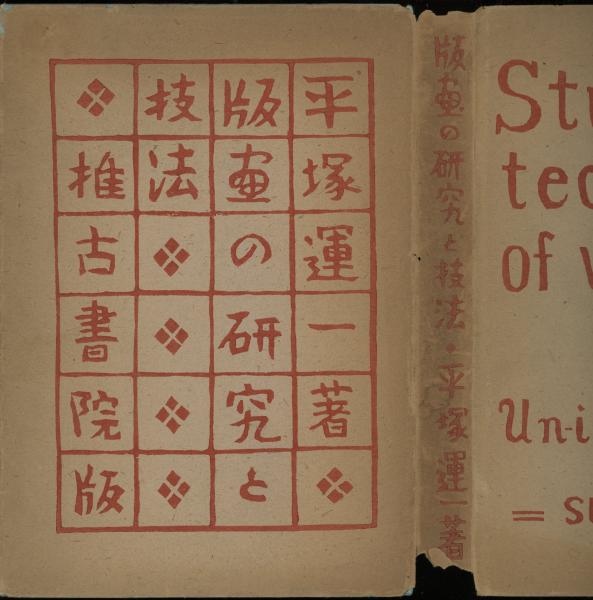 平塚運一著
版画の研究と
技法
推古書院版
版画の研究と技法・平塚運一著
Stu
tec
of w
Un-i
= su